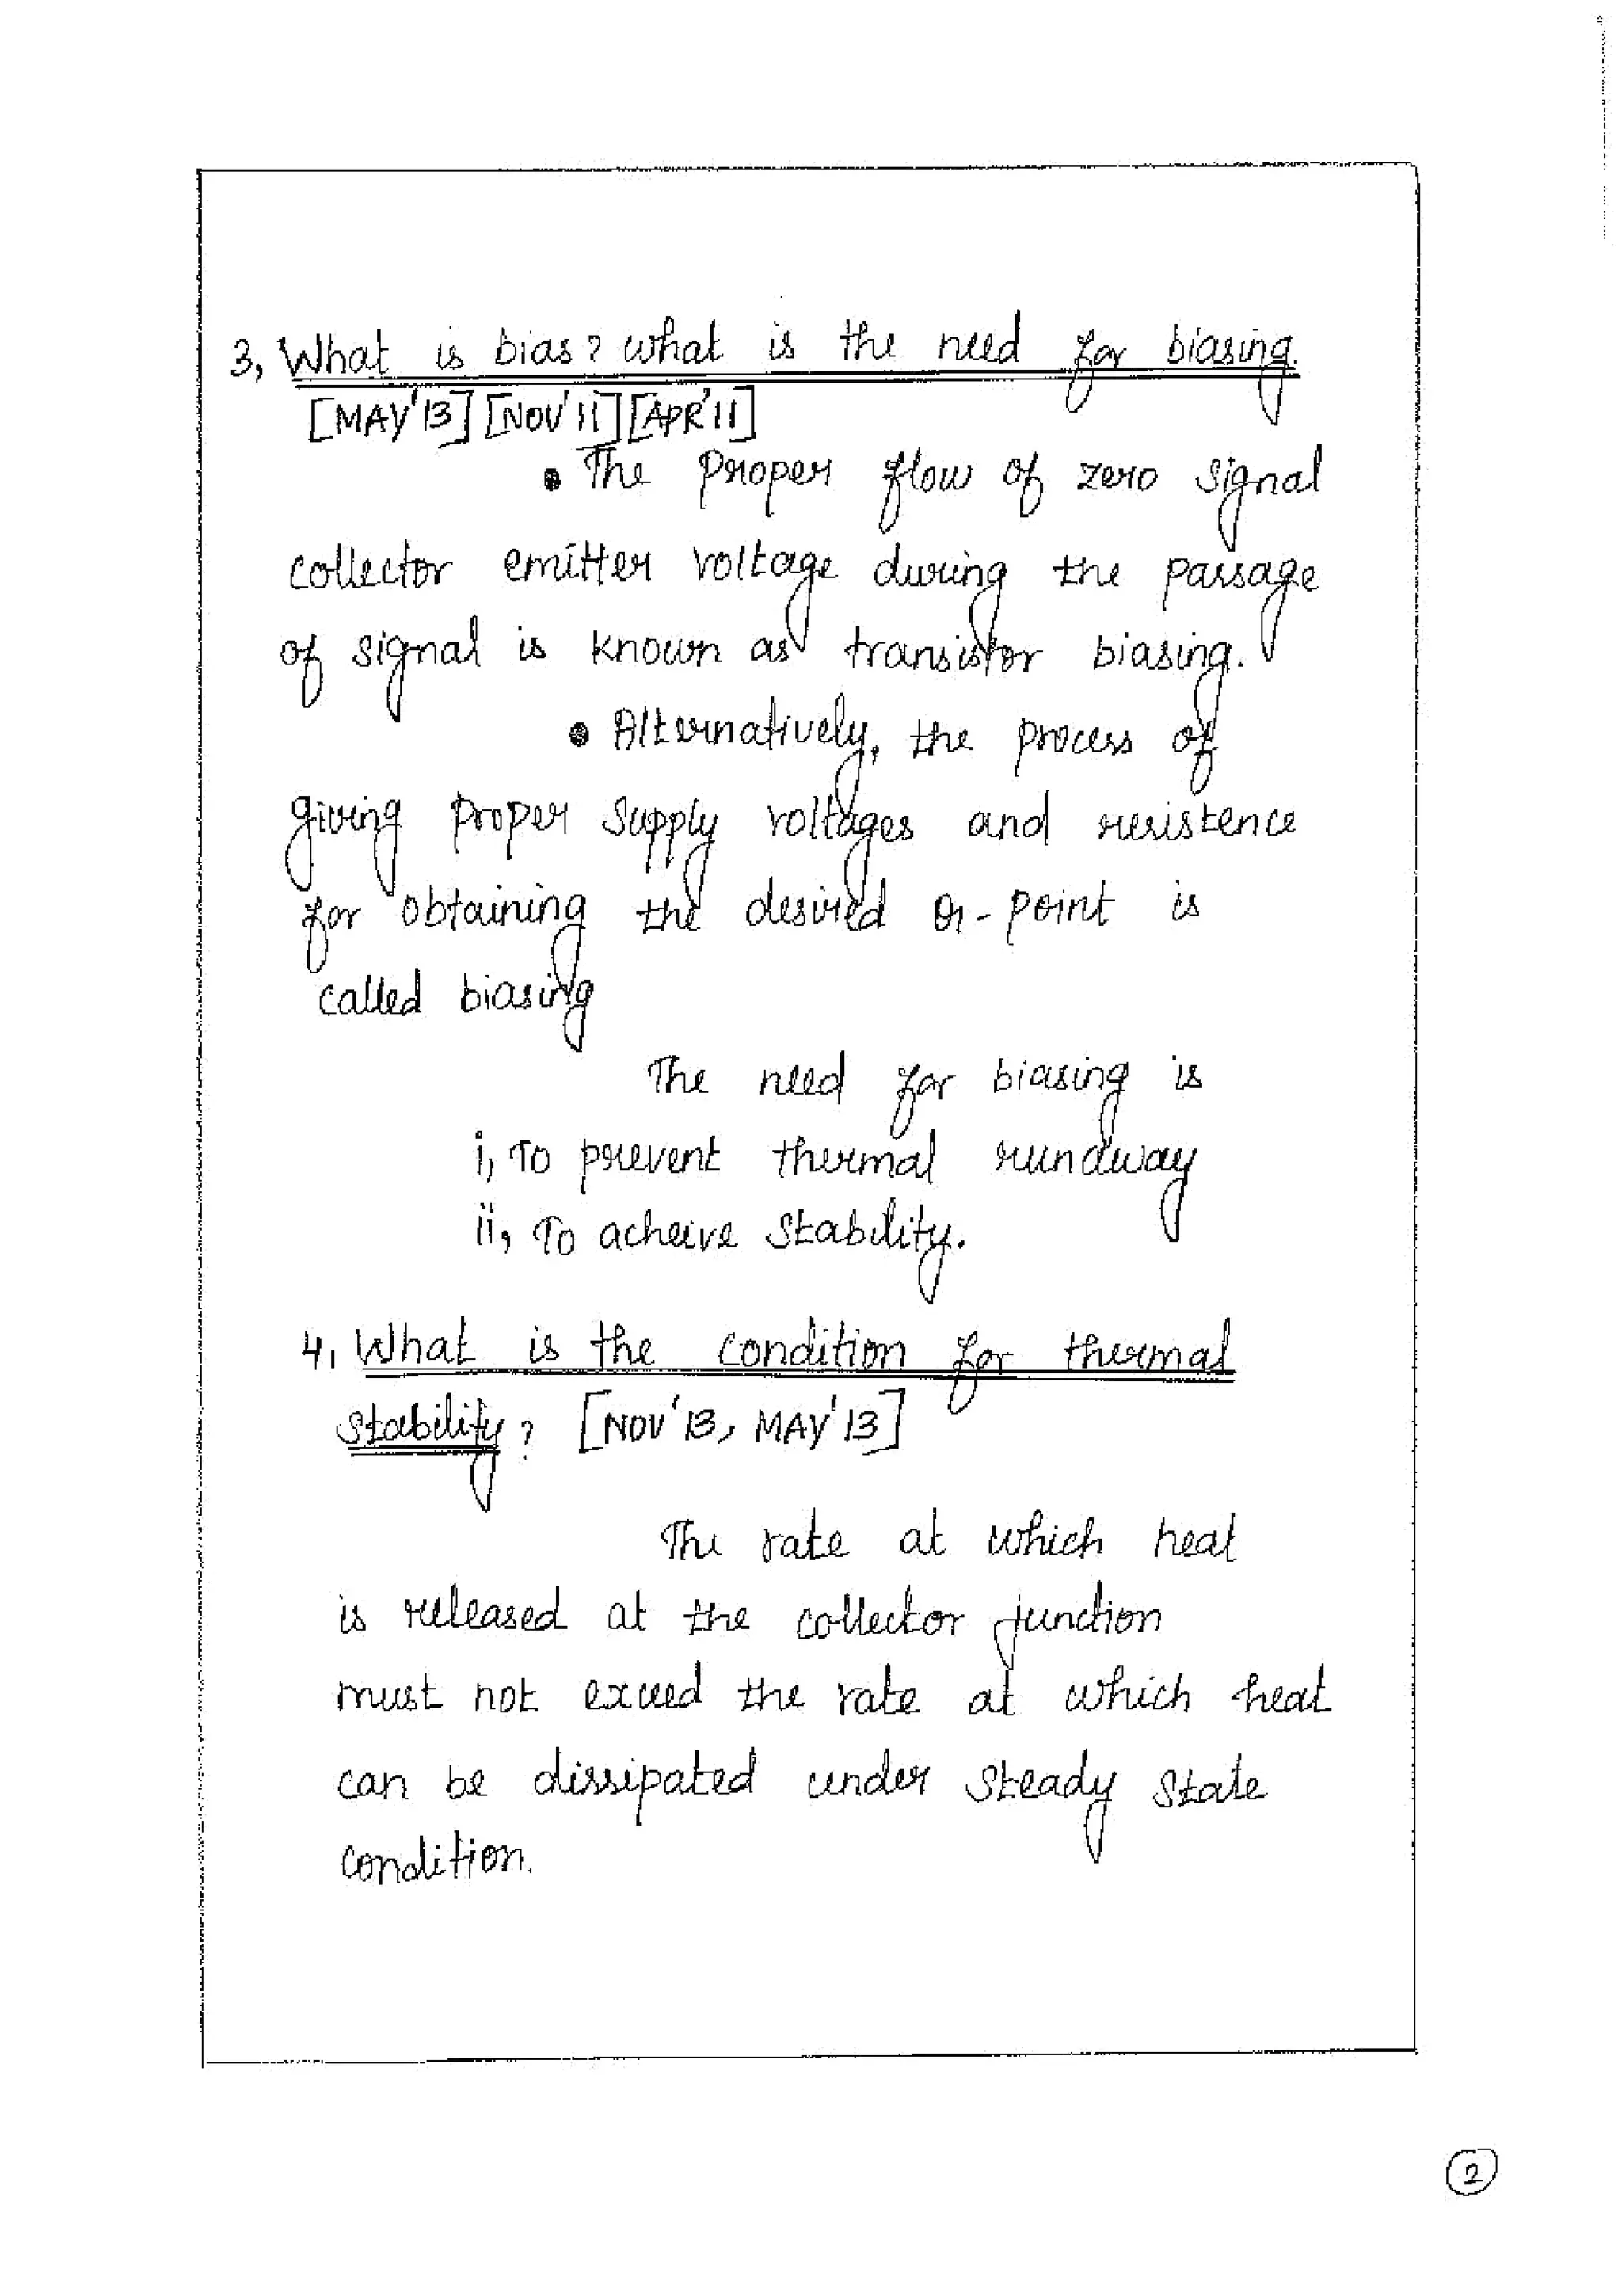 3, What is bias? what is the need for biasing.
[MAY'13] [NOV'11] [APR'11]
• The proper flow of zero signal
collector emitter voltage during the passage
of signal is known as transistor biasing.
• Alternatively, the process of
giving proper supply voltages and resistence
for obtaining the desired Q-point is
called biasing
The need for biasing is
i, To prevent thermal runaway
ii, To acheive stability.
4, What is the condition for thermal
stability? [NOV'13, MAY'13]
The rate at which heat
is released at the collector junction
must not exceed the rate at which heat
can be dissipated under steady state
condition.
2